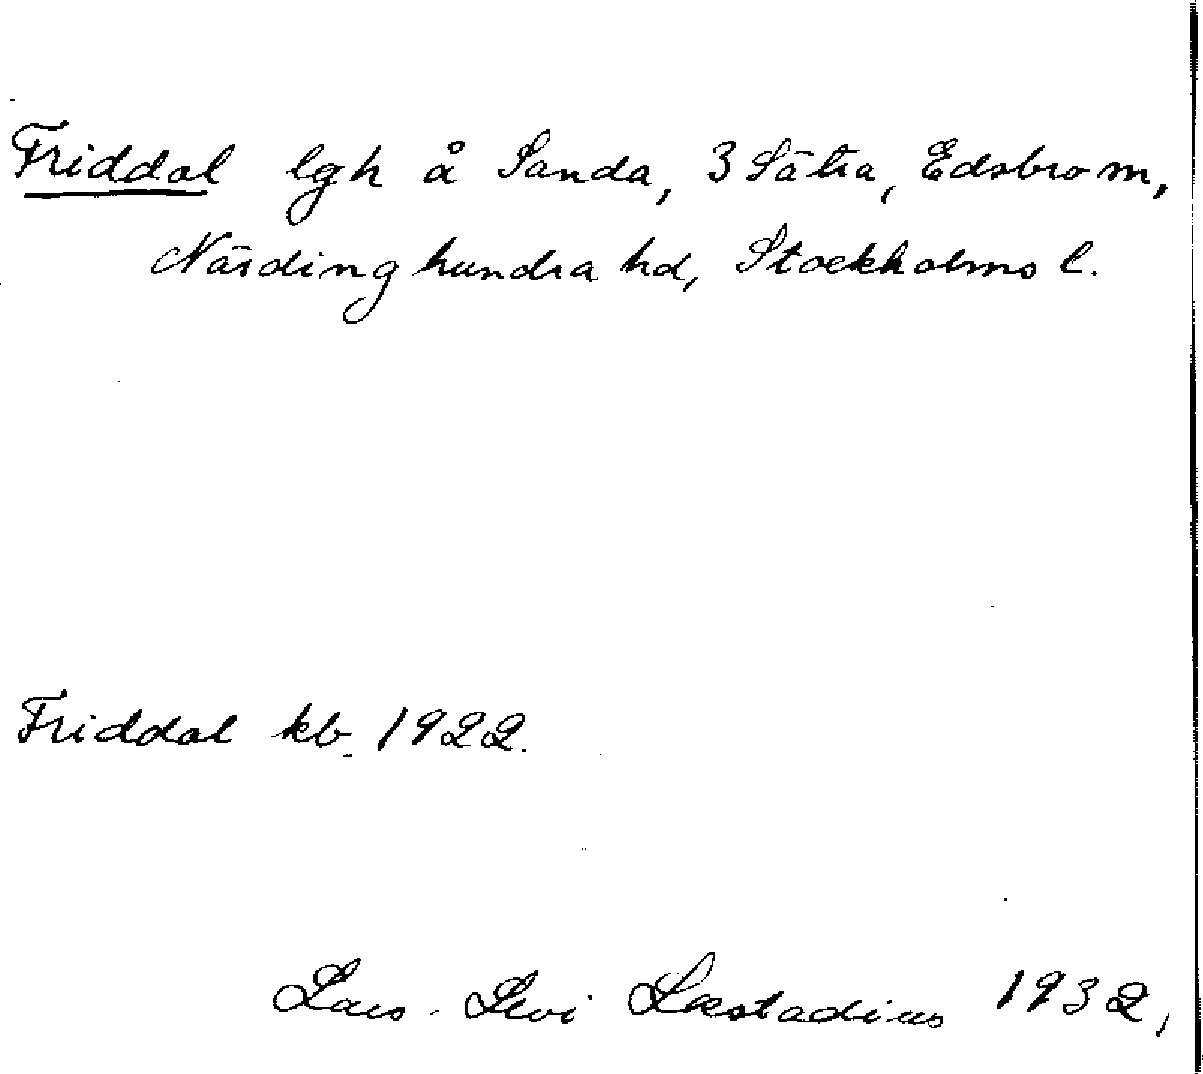 Friddal lgh å Sanda, 3 Sätra, Edsbro m,
Närdinghundra hd, Stockholms l.
Friddal kb. 1922.
Lars-Levi Læstadius 1932,